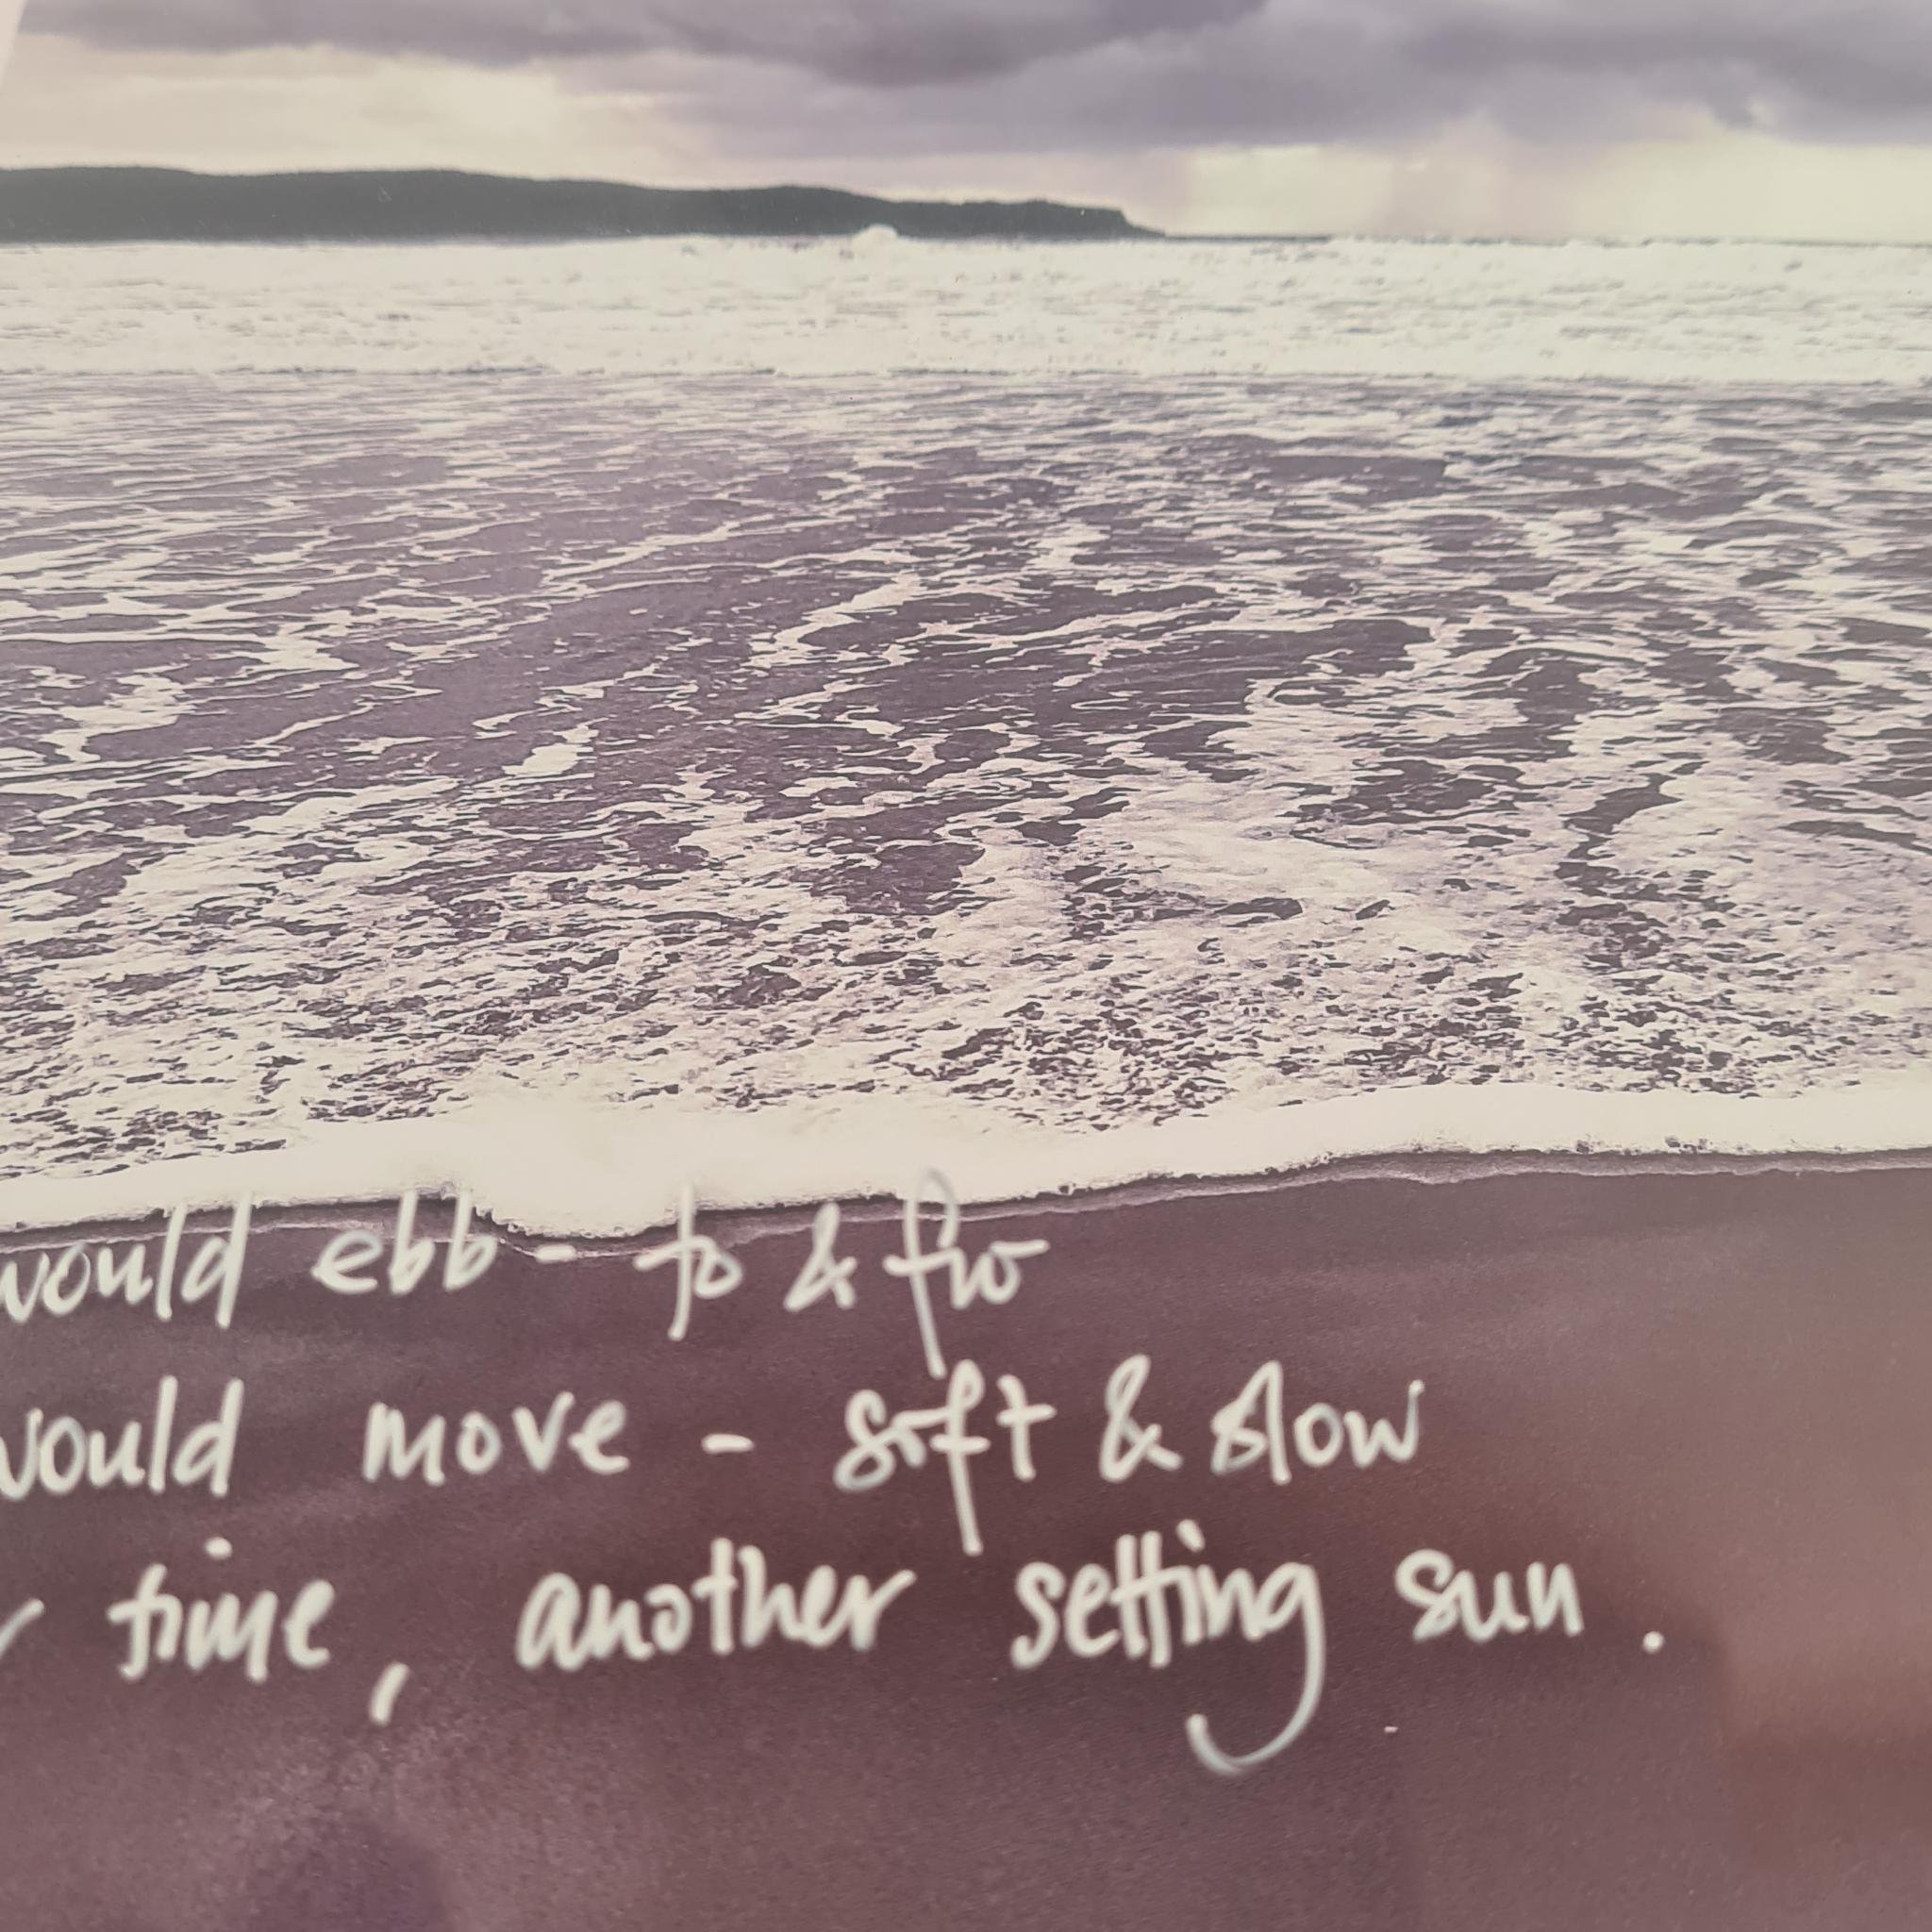 would ebb - to & fro
would move - soft & slow
time, another setting sun.